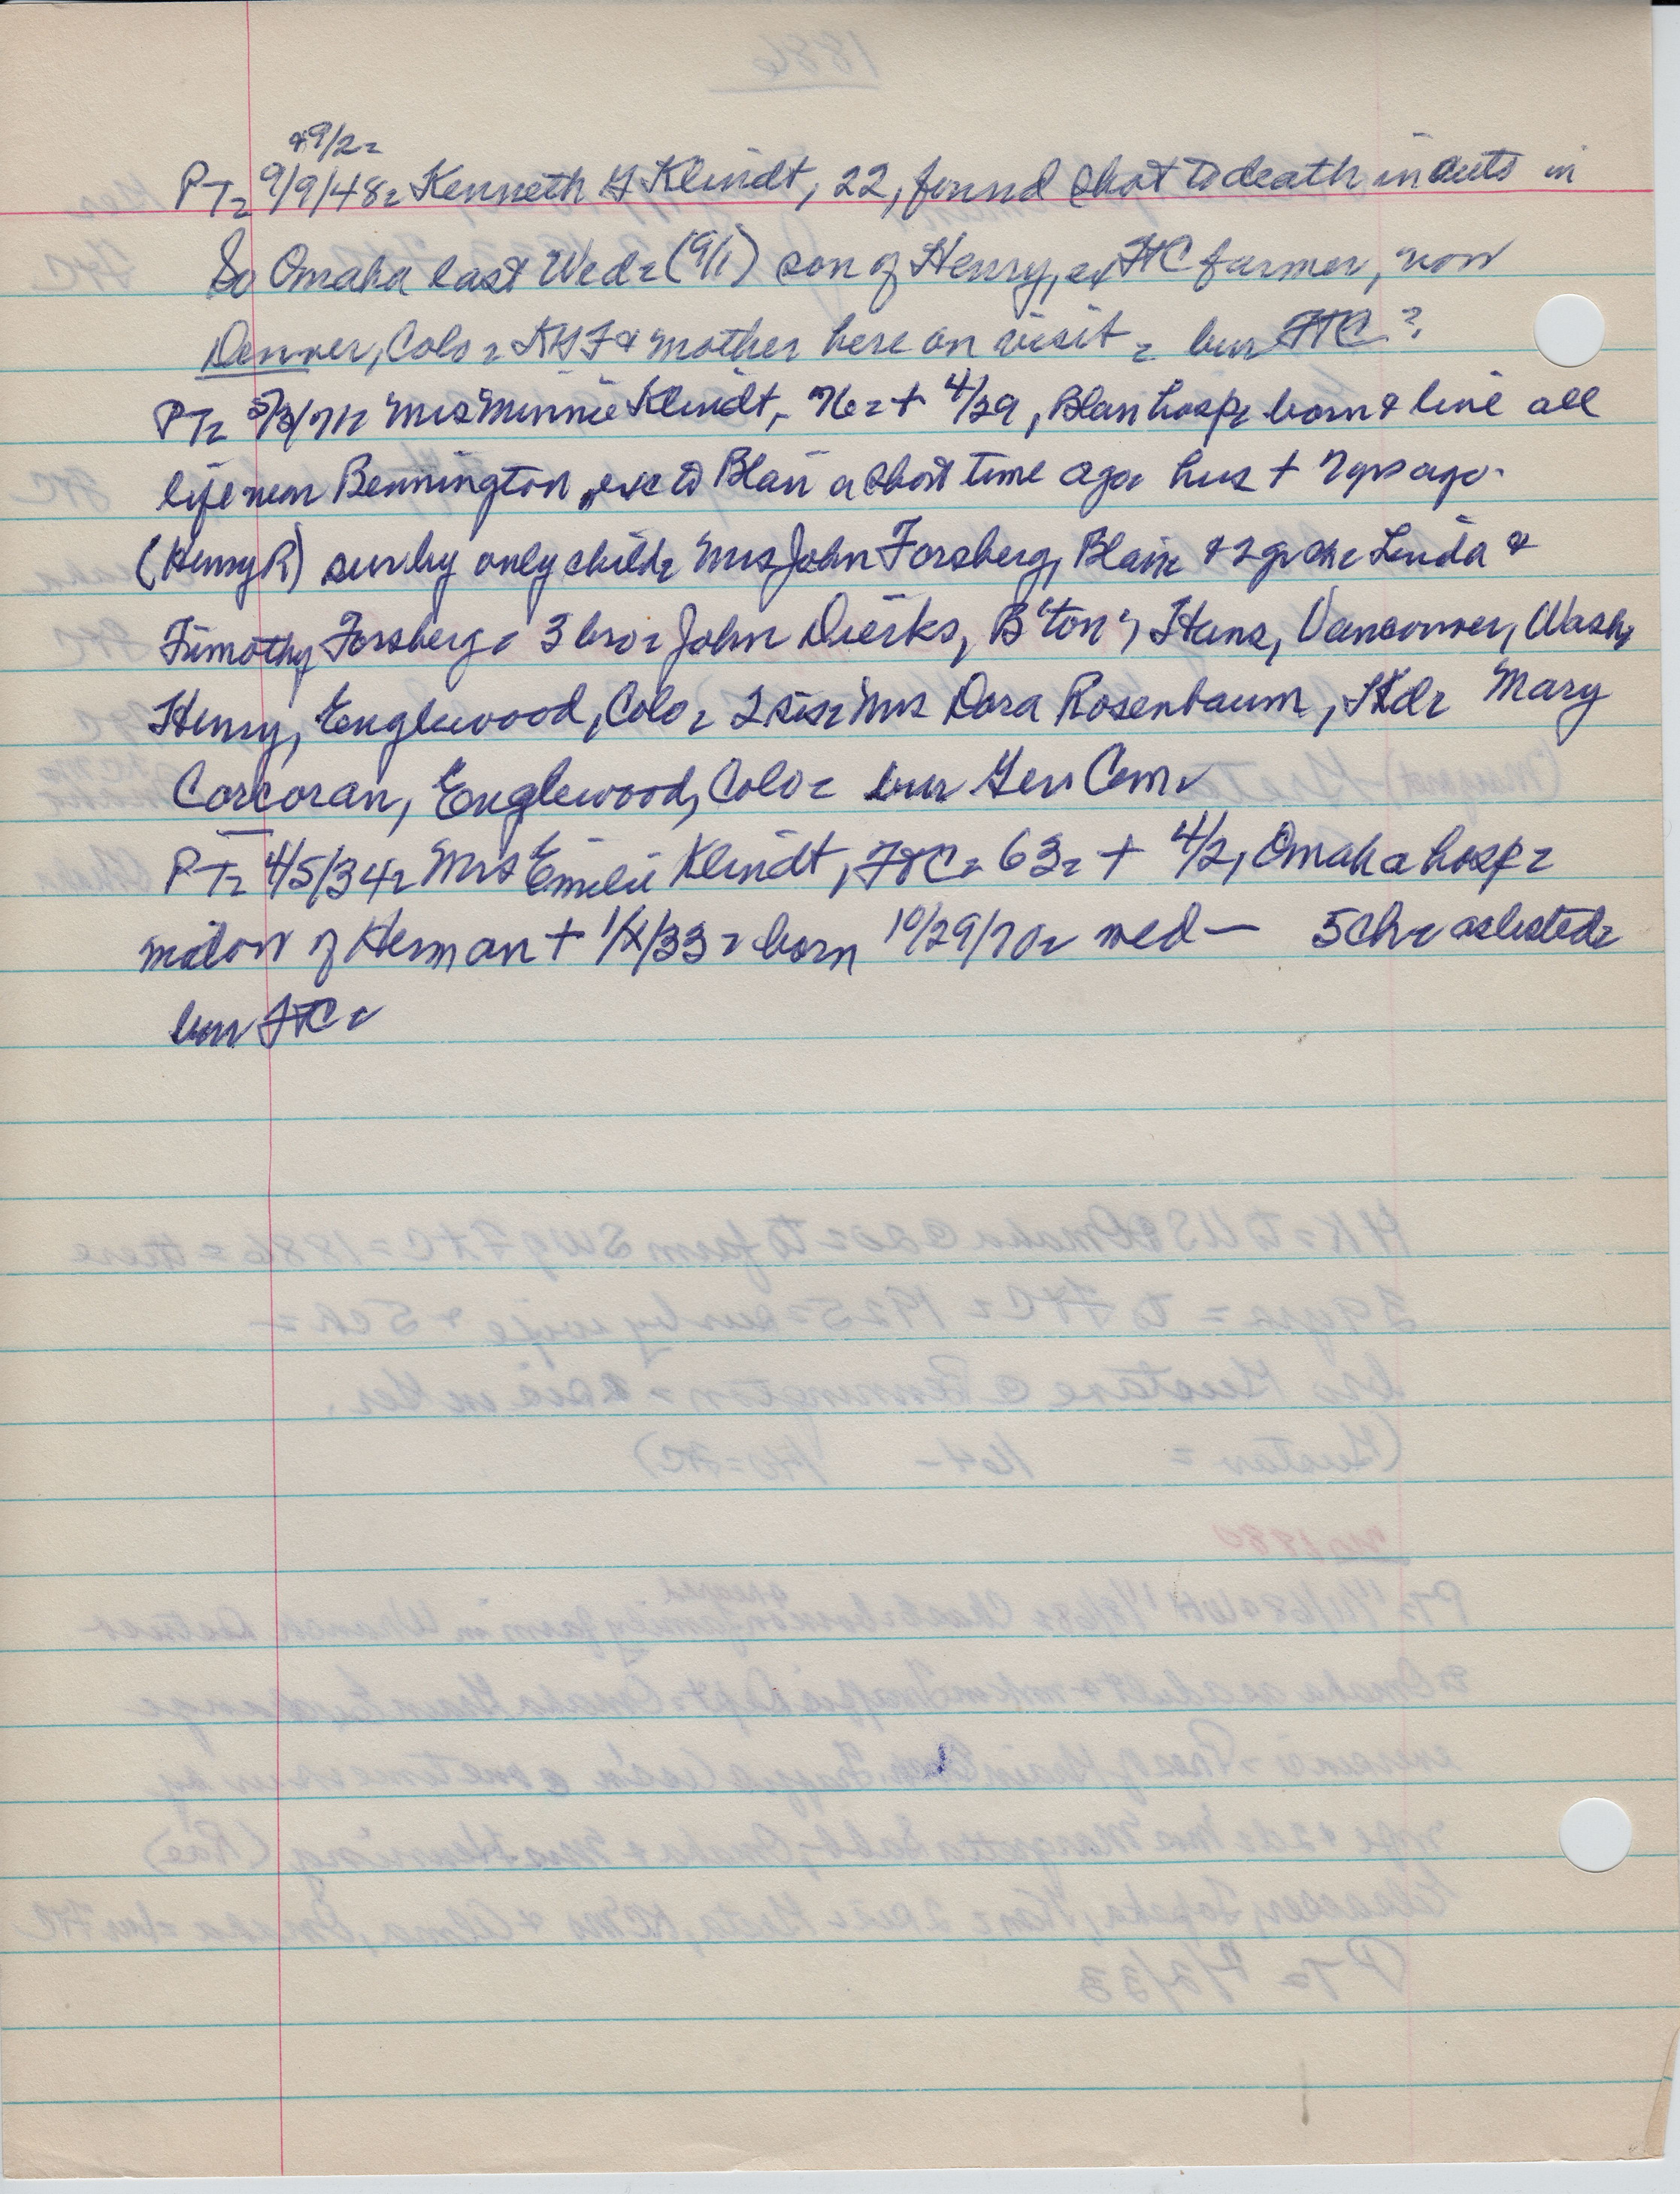 & 9/2=
PT= 9/9/48= Kenneth H Klindt, 22, found shot to death in auto in
So Omaha last Wed= (9/1) son of Henry, ex FtC farmer, now
Denver, Colo= & mother here on visit= bur FTC?
PT= Mrs Minnie Klindt, 76= + 4/29, Blair hosp= born & live all
life near Bennington, exc to Blair a short time ago hus + 7 yrs ago.
(Henry R) sur by only child= Mrs John Forsberg, Blair & 2 gr ch= Linda &
Timothy Forsberg= 3 bro= John Dierks, B'ton, Hans, Vancouver, Wash,
Henry, Englewood, Colo= 2 sis= Mrs Dora Rosenbaum, Mary
Corcoran, Englewood, Colo= bur Ger Cem=
PT= 4/5/34= Mrs Emilie Klindt, FtC= 63= + 4/2, Omaha hosp=
widow of Herman + 1/ /33= born 10/29/70= wed — 5 ch= as listed=
bur FTC=